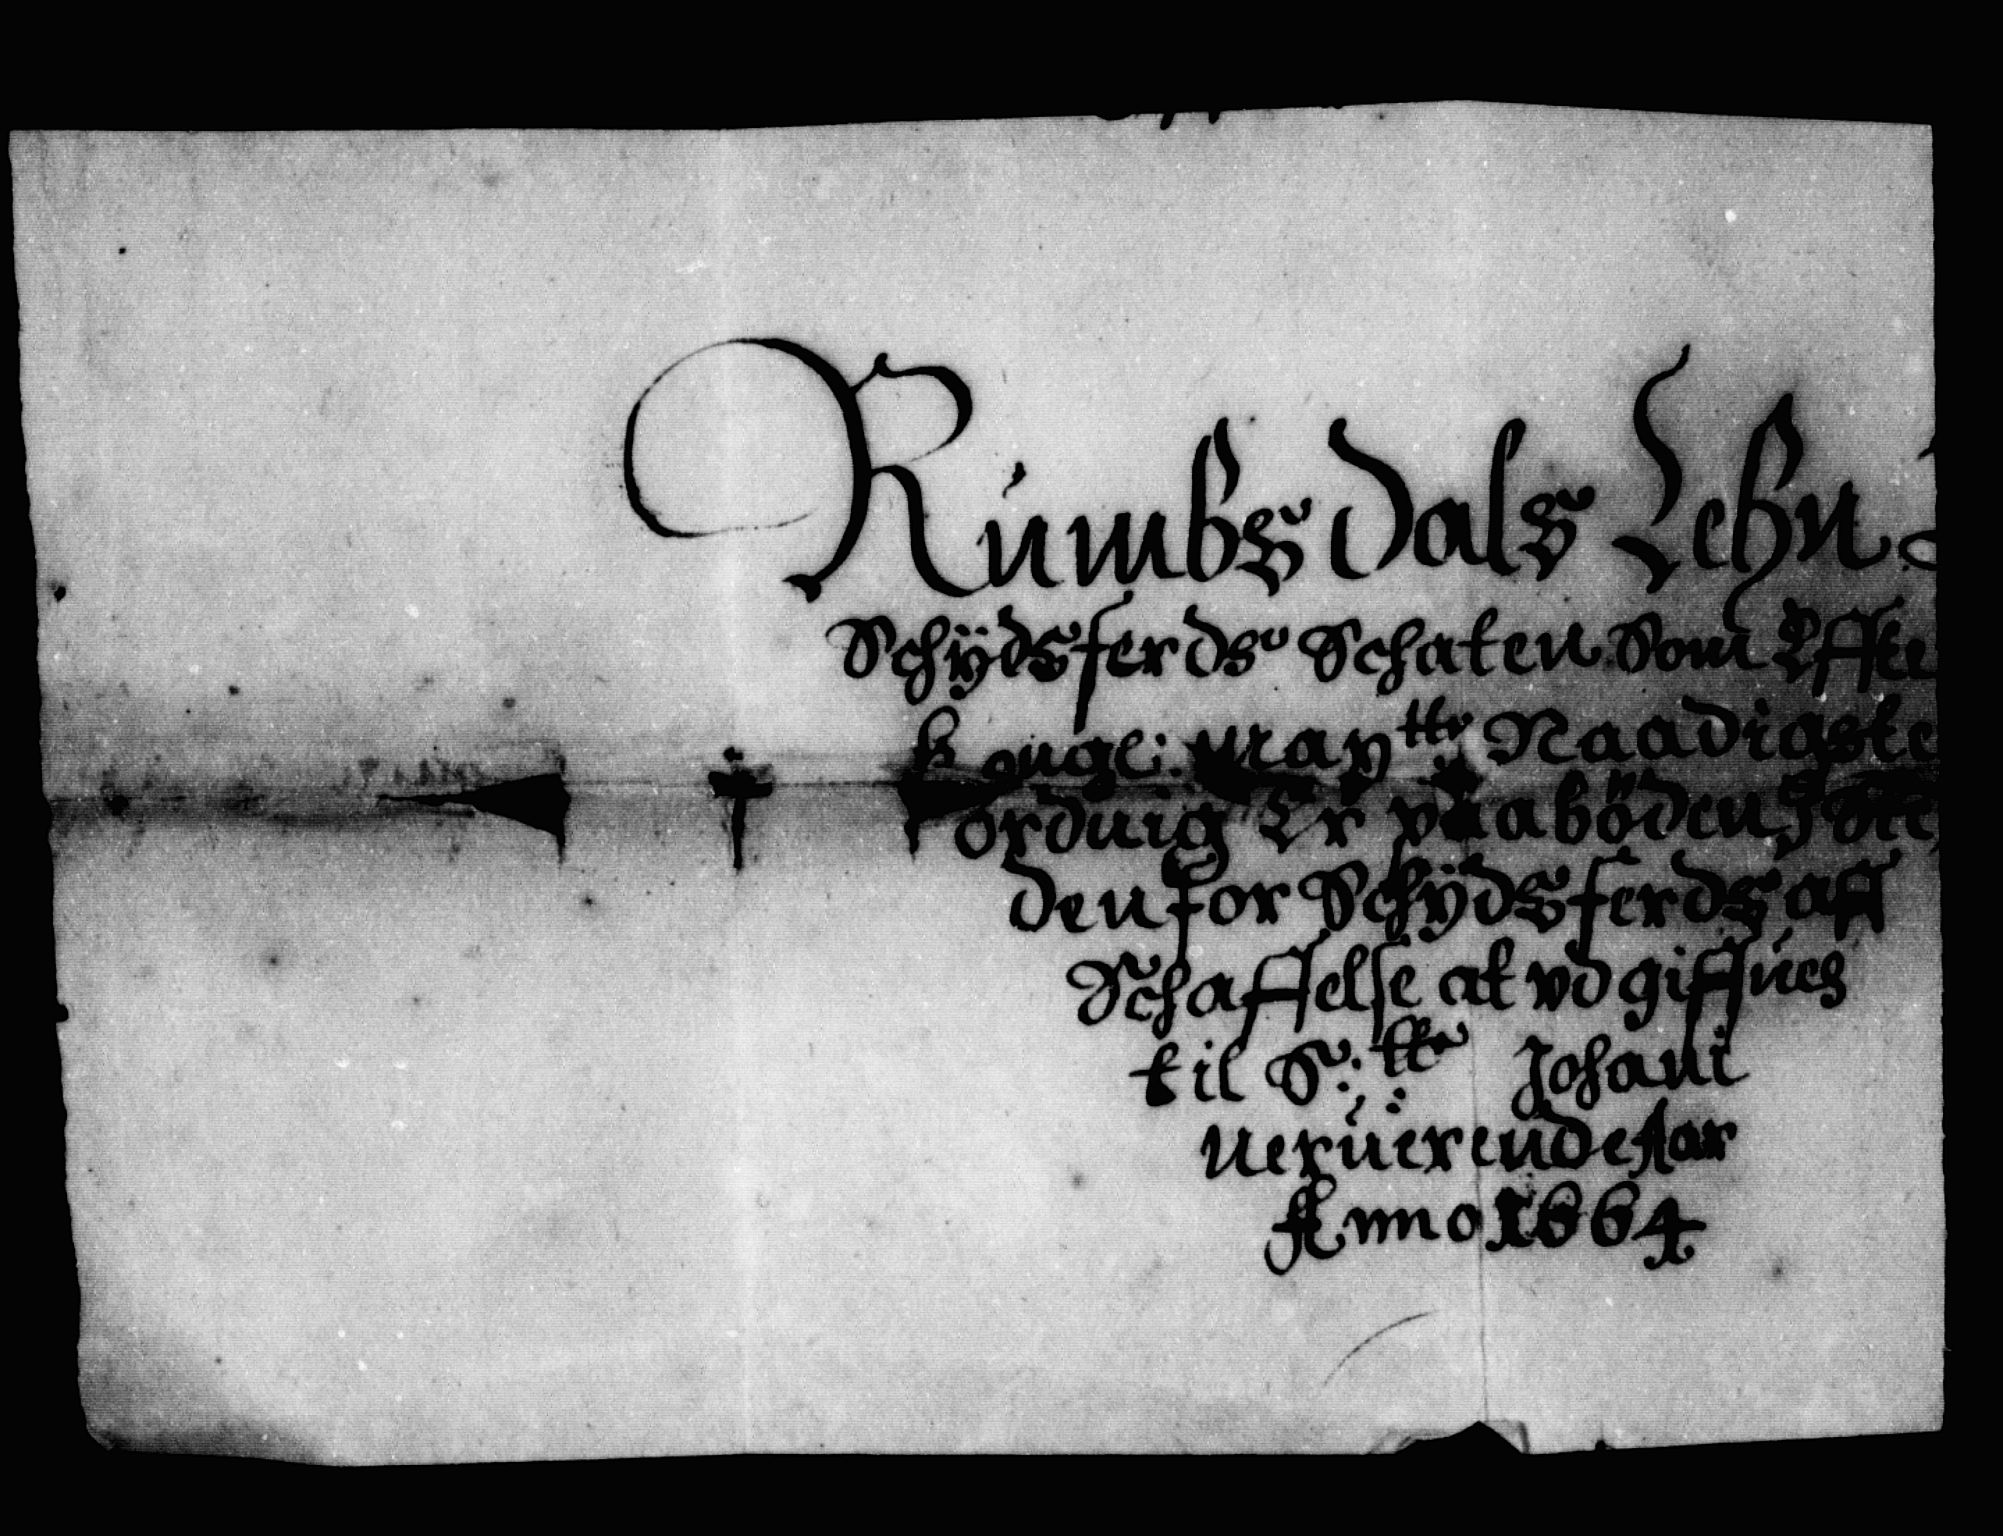 Rúmbs dals Lehn
Schÿdsferds Schaten Som Effte
Konge: Mayttr Naadigste
ordnig Er paaböden
den for Schÿdsferds aff
Schaffelse at vdgiffúes
til S:ttr Johani
Nerúerende Aar
Anno 1664